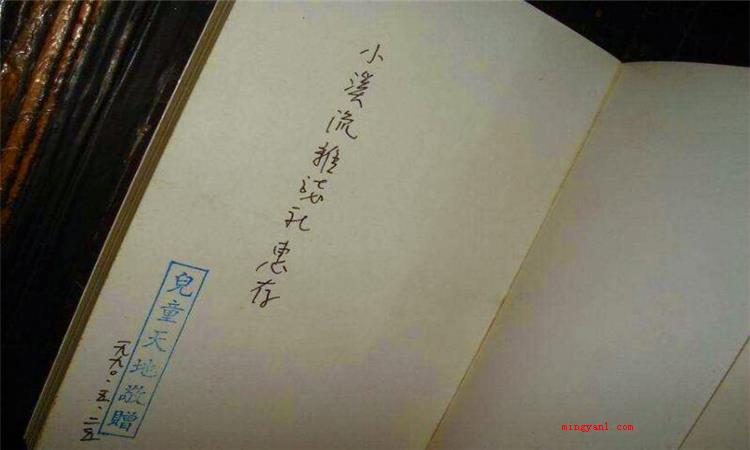 小溪流雜誌社惠存
兒童天地敬贈
一九九〇.五.二五
mingyanl.com